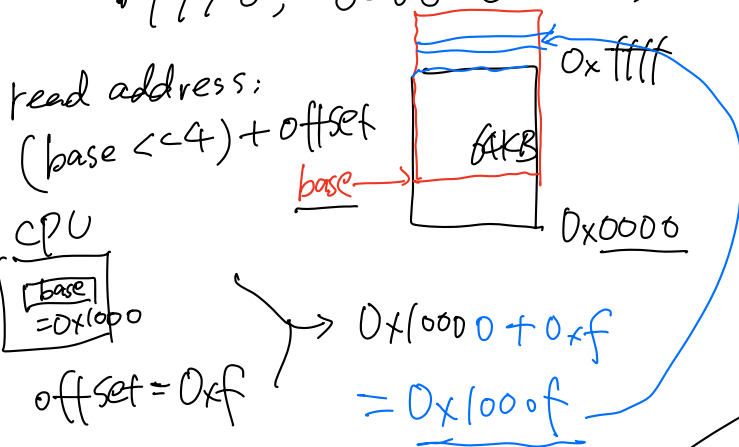 0xffff
read address:
(base <<4) + offset
64KB
base
0x0000
CPU
base
=0x1000
0x10000 + 0xf
offset = 0xf
= 0x1000f